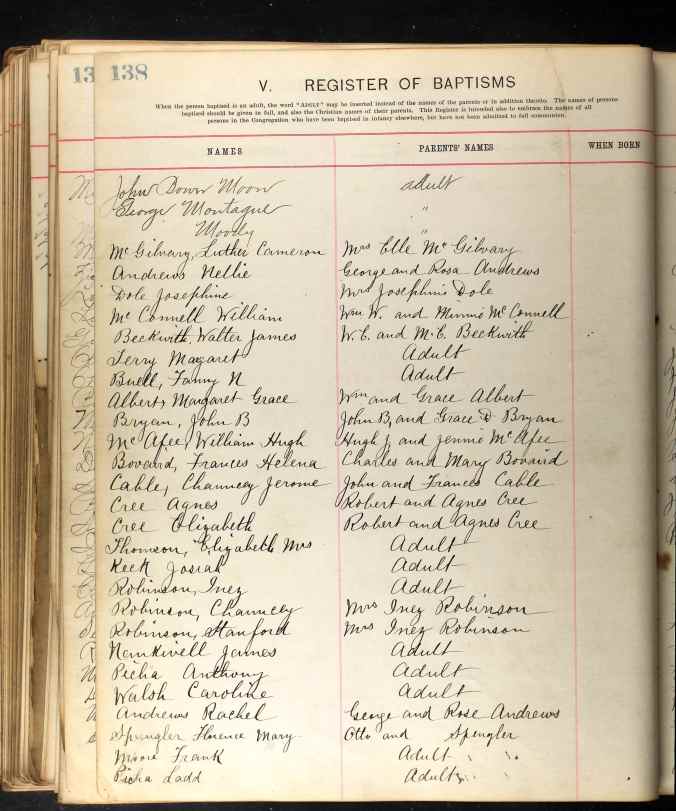 13 138
V. REGISTER OF BAPTISMS
When the person baptized is an adult, the word "ADULT" may be inserted instead of the names of the parents or in addition thereto. The names of persons
baptized should be given in full, and also the Christian names of their parents. This Register is intended also to embrace the names of all
persons in the Congregation who have been baptized in infancy elsewhere, but have not been admitted to full communion.
NAMES PARENTS' NAMES WHEN BORN
John Down Moon adult
George Montague "
Moody "
Mc Gilvary, Luther Cameron Mrs Elle Mc Gilvary
Andrews Nellie George and Rosa Andrews
Dole Josephine Mrs Josephine Dole
Mc Connell William Wm W. and Minnie Mc Connell
Beckwith, Walter James W. C. and M. C. Beckwith
Terry Margaret Adult
Buell, Fanny N Adult
Albert, Margaret Grace Wm and Grace Albert
Bryan, John B John B, and Grace D Bryan
Mc Afee, William Hugh Hugh J and Jennie Mc Afee
Bovaird, Frances Helena Charles and Mary Bovaird
Cable, Chauncey Jerome John and Frances Cable
Cree Agnes Robert and Agnes Cree
Cree Elizabeth Robert and Agnes Cree
Thomson, Elizabeth Mrs Adult
Keck Josiah Adult
Robinson, Inez Adult
Robinson, Chauncey Mrs Inez Robinson
Robinson, Stanford Mrs Inez Robinson
Nankivell James Adult
Picha Anthony Adult
Walsh Caroline Adult
Andrews Rachel George and Rose Andrews
Spengler Florence Mary Otto and Spengler
Moore Frank Adult
Picha Ladd Adult